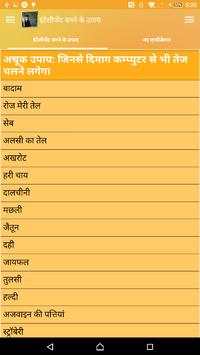 इंटेलीजेंट बनने के उपाय
इंटेलीजेंट बनने के उपाय
अचूक उपाय: जिनसे दिमाग कम्प्युटर से भी तेज
चलने लगेगा
बादाम
रोज मेरी तेल
सेब
अलसी का तेल
अखरोट
हरी चाय
दालचीनी
मछली
जैतून
दही
जायफल
तुलसी
हल्दी
अजवाइन की पत्तियां
स्ट्रॉबेरी